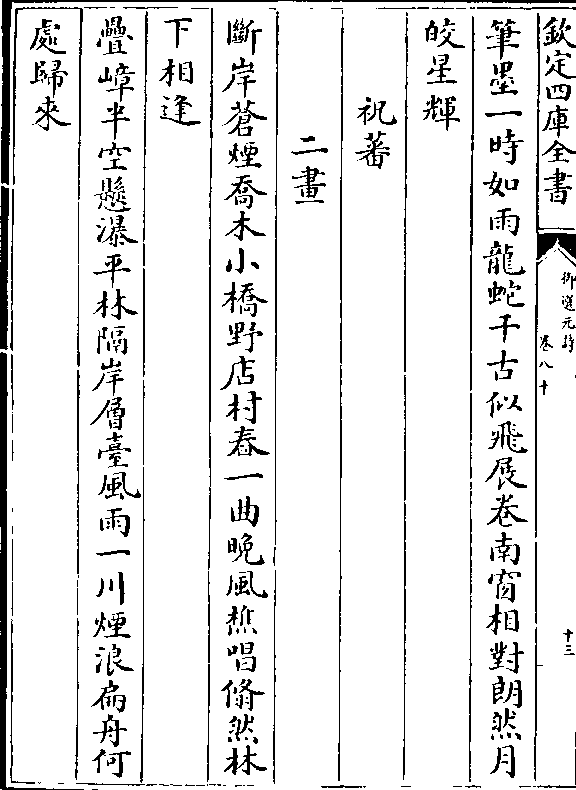 欽定四庫全書
御選元詩
卷八十
十三
筆墨一時如雨龍蛇千古似飛展卷南窗相對朗然月
皎星輝
祝蕃
二畫
斷岸蒼煙喬木小橋野店村舂一曲晚風樵唱翛然林
下相逢
疊嶂半空懸瀑平林隔岸層臺風雨一川煙浪扁舟何
處歸來